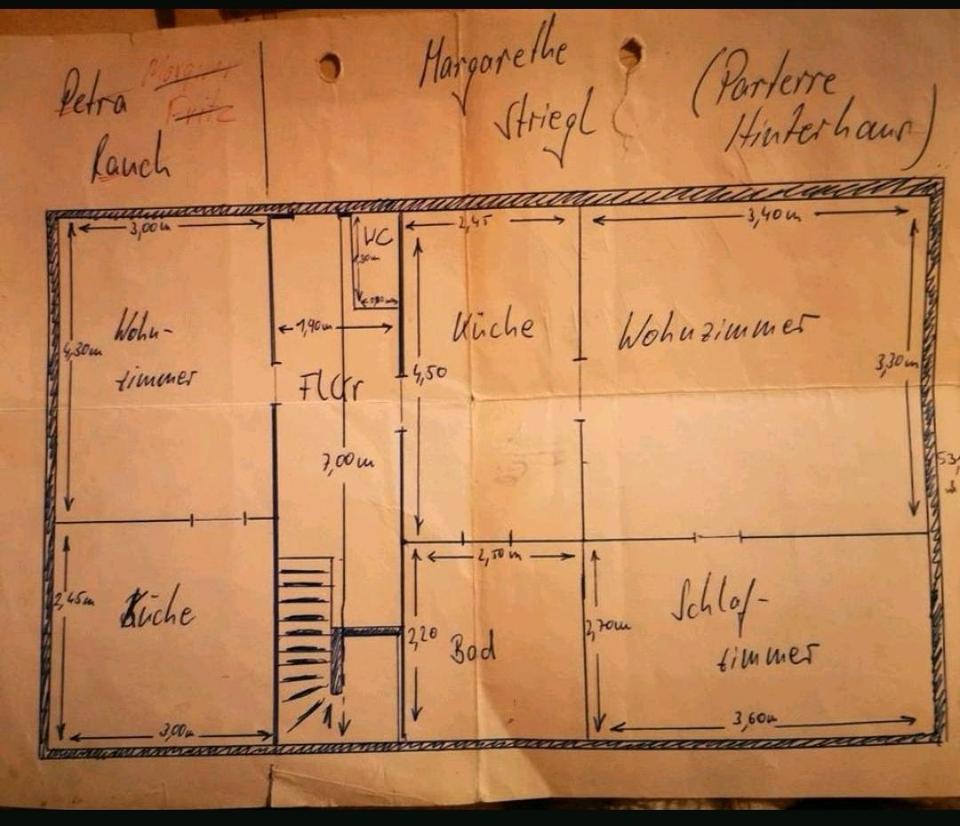 Petra
Rauch
Margarethe
Striegl
(Parterre
Hinterhaus)
3,00m
WC
2,45
3,40m
1,90m
Wohn-
zimmer
4,30m
Küche
Wohnzimmer
4,50
3,30m
Flur
7,00m
2,50m
2,45m
Küche
2,20
Bad
2,70m
Schlaf-
zimmer
3,00m
3,60m